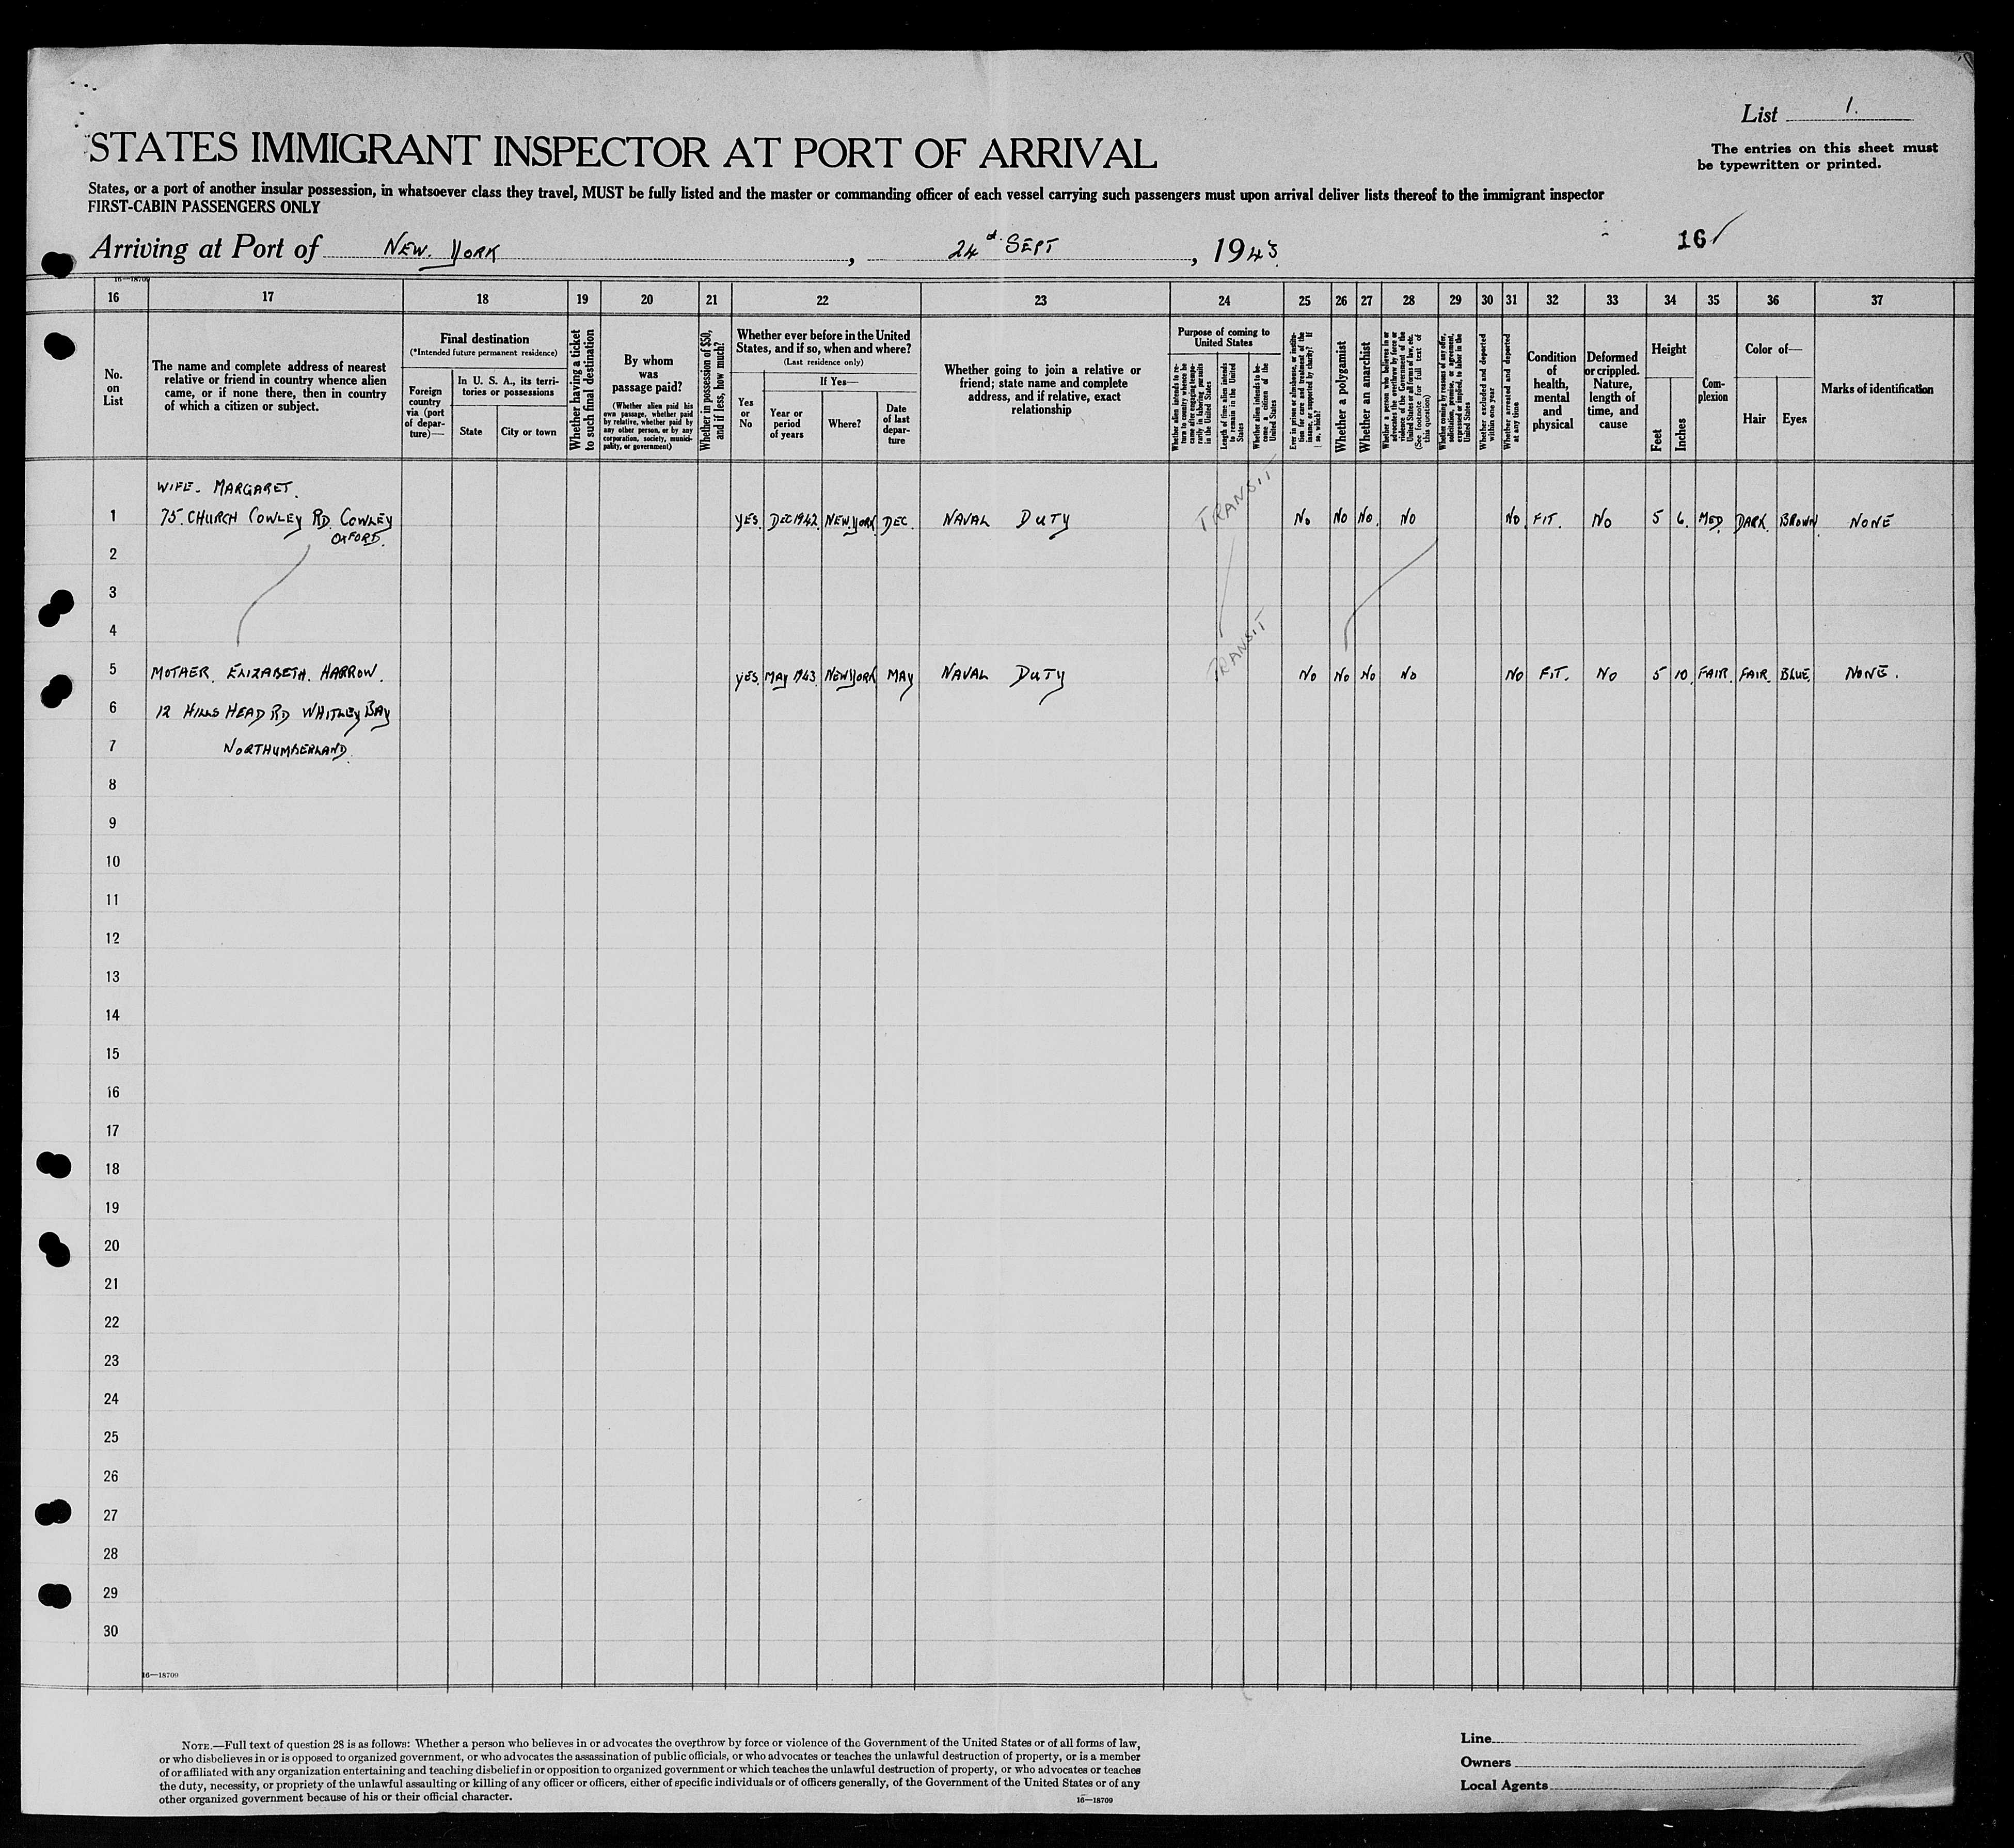 List 1.
STATES IMMIGRANT INSPECTOR AT PORT OF ARRIVAL
The entries on this sheet must
be typewritten or printed.
States, or a port of another insular possession, in whatsoever class they travel, MUST be fully listed and the master or commanding officer of each vessel carrying such passengers must upon arrival deliver lists thereof to the immigrant inspector
FIRST-CABIN PASSENGERS ONLY
Arriving at Port of NEW. YORK, 24 d. SEPT, 1943.
16
16—18709
16 17 18 19 20 21 22 23 24 25 26 27 28 29 30 31 32 33 34 35 36 37
No.
on
List
The name and complete address of nearest
relative or friend in country whence alien
came, or if none there, then in country
of which a citizen or subject.
Final destination
(*Intended future permanent residence)
Foreign
country
via (port
of depar-
ture)—
In U. S. A., its terri-
tories or possessions
State
City or town
Whether having a ticket
to such final destination
By whom
was
passage paid?
(Whether alien paid his
own passage, whether paid
by relative, whether paid by
any other person, or by any
corporation, society, munici-
pality, or government)
Whether in possession of $50,
and if less, how much?
Whether ever before in the United
States, and if so, when and where?
(Last residence only)
Yes
or
No
If Yes—
Year or
period
of years
Where?
Date
of last
depar-
ture
Whether going to join a relative or
friend; state name and complete
address, and if relative, exact
relationship
Purpose of coming to
United States
Whether alien intends to re-
turn to country whence he
came after engaging tempo-
rarily in laboring pursuits
in the United States
Length of time alien intends
to remain in the United
States
Whether alien intends to be-
come a citizen of the
United States
Ever in prison or almshouse, or institu-
tion for care and treatment of the
insane, or supported by charity? If
so, which?
Whether a polygamist
Whether an anarchist
Whether a person who believes in or
advocates the overthrow by force or
violence of the Government of the
United States or all forms of law, etc.
(See footnote for full text of
this question)
Whether coming by reasons of any offer,
solicitation, promise, or agreement,
expressed or implied, to labor in the
United States
Whether excluded and deported
within one year
Whether arrested and deported
at any time
Condition
of
health,
mental
and
physical
Deformed
or crippled.
Nature,
length of
time, and
cause
Height
Feet
Inches
Com-
plexion
Color of—
Hair
Eyes
Marks of identification
WIFE. MARGARET.
1 75. CHURCH COWLEY RD. COWLEY YES. DEC 1942. NEW.YORK DEC. NAVAL DUTY TRANSIT NO NO NO. NO NO. FIT. NO 5 6. MED. DARK. BROWN. NONE
OXFORD.
2
3
4
5 MOTHER. ELIZABETH. HARROW. YES. MAY 1943. NEWYORK MAY NAVAL DUTY TRANSIT NO NO NO NO NO FIT. NO 5 10. FAIR. FAIR. BLUE. NONE.
6 12 HILLS HEAD RD WHITLEY BAY
7 NORTHUMBERLAND.
8
9
10
11
12
13
14
15
16
17
18
19
20
21
22
23
24
25
26
27
28
29
30
16—18709
NOTE.—Full text of question 28 is as follows: Whether a person who believes in or advocates the overthrow by force or violence of the Government of the United States or of all forms of law,
or who disbelieves in or is opposed to organized government, or who advocates the assassination of public officials, or who advocates or teaches the unlawful destruction of property, or is a member
of or affiliated with any organization entertaining and teaching disbelief in or opposition to organized government or which teaches the unlawful destruction of property, or who advocates or teaches
the duty, necessity, or propriety of the unlawful assaulting or killing of any officer or officers, either of specific individuals or of officers generally, of the Government of the United States or of any
other organized government because of his or their official character.
16—18709
Line
Owners
Local Agents